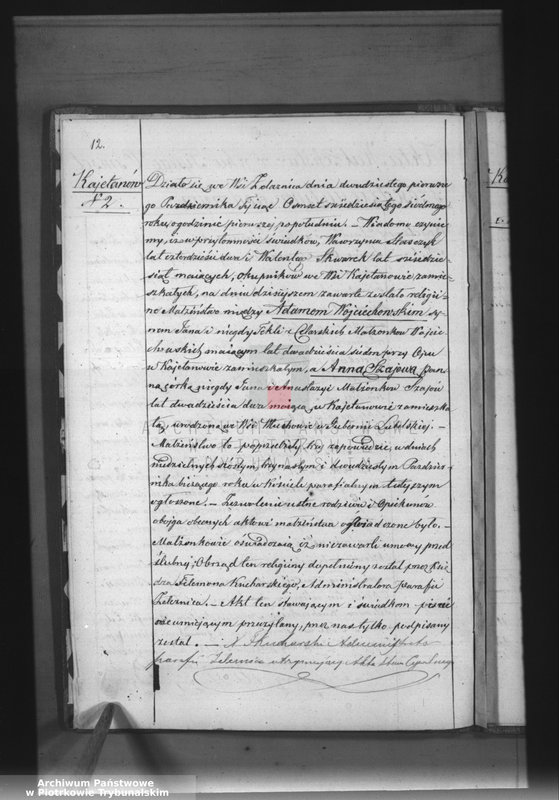 12.
Kajetanów
№ 2.
Działo się we Wsi Żelaznica dnia dwudziestego pierwsze-
go Października Tysiąc Ośmset siedemdziesiątego siódmego
roku o godzinie pierwszej popołudniu. — Wiadomo czynie-
my, iż w przytomności świadków, Wawrzyna Staszczyk
lat czterdzieści dwa i Walentego Skwarek lat
maiących, Okupników we Wsi Kajetanowie zamie-
szkałych, na dniu dzisiejszem zawarte zostało religij-
no Małżeństwo między Adamem Wojciechowskim sy-
nem Jana i niegdy Tekli z Celarskich Małżonków Wojcie-
chowskich, mającym lat dwadzieścia siedm przy Ojcu
w Kajetanowie zamieszkałym, a Anną Szajową pan-
ną córką niegdy Jana i Anastazyi Małżonków Szajów
lat dwadzieścia dwa mającą, w Kajetanowie zamieszka-
łą, urodzoną we Wsi w Gubernii Lubelskiej. —
Małżeństwo to poprzedziły trzy zapowiedzie, w dniach
niedzielnych szóstym, trzynastym i dwudziestym Paździer-
nika bieżącego roku w Kościele parafialnym tutejszym
ogłoszone. — Zezwolenie ustne rodziców i Opiekunów
obojga obecnych aktowi małżeństwa oświadczone było. —
Małżonkowie oświadczają iż nie zawarli umowy przed
ślubnej; Obrząd ten religijny dopełniony został przez Xię-
dza Filemona Kucharskiego, Administratora parafii
Żeleznica. — Akt ten stawającym i świadkom pisać
nie umiejącym przeczytany, przez nas tylko podpisany
został. — X. Kucharski Administrator
parafii Żelaznica utrzymujący Akta Stanu Cywilnego
Archiwum Państwowe
w Piotrkowie Trybunalskim